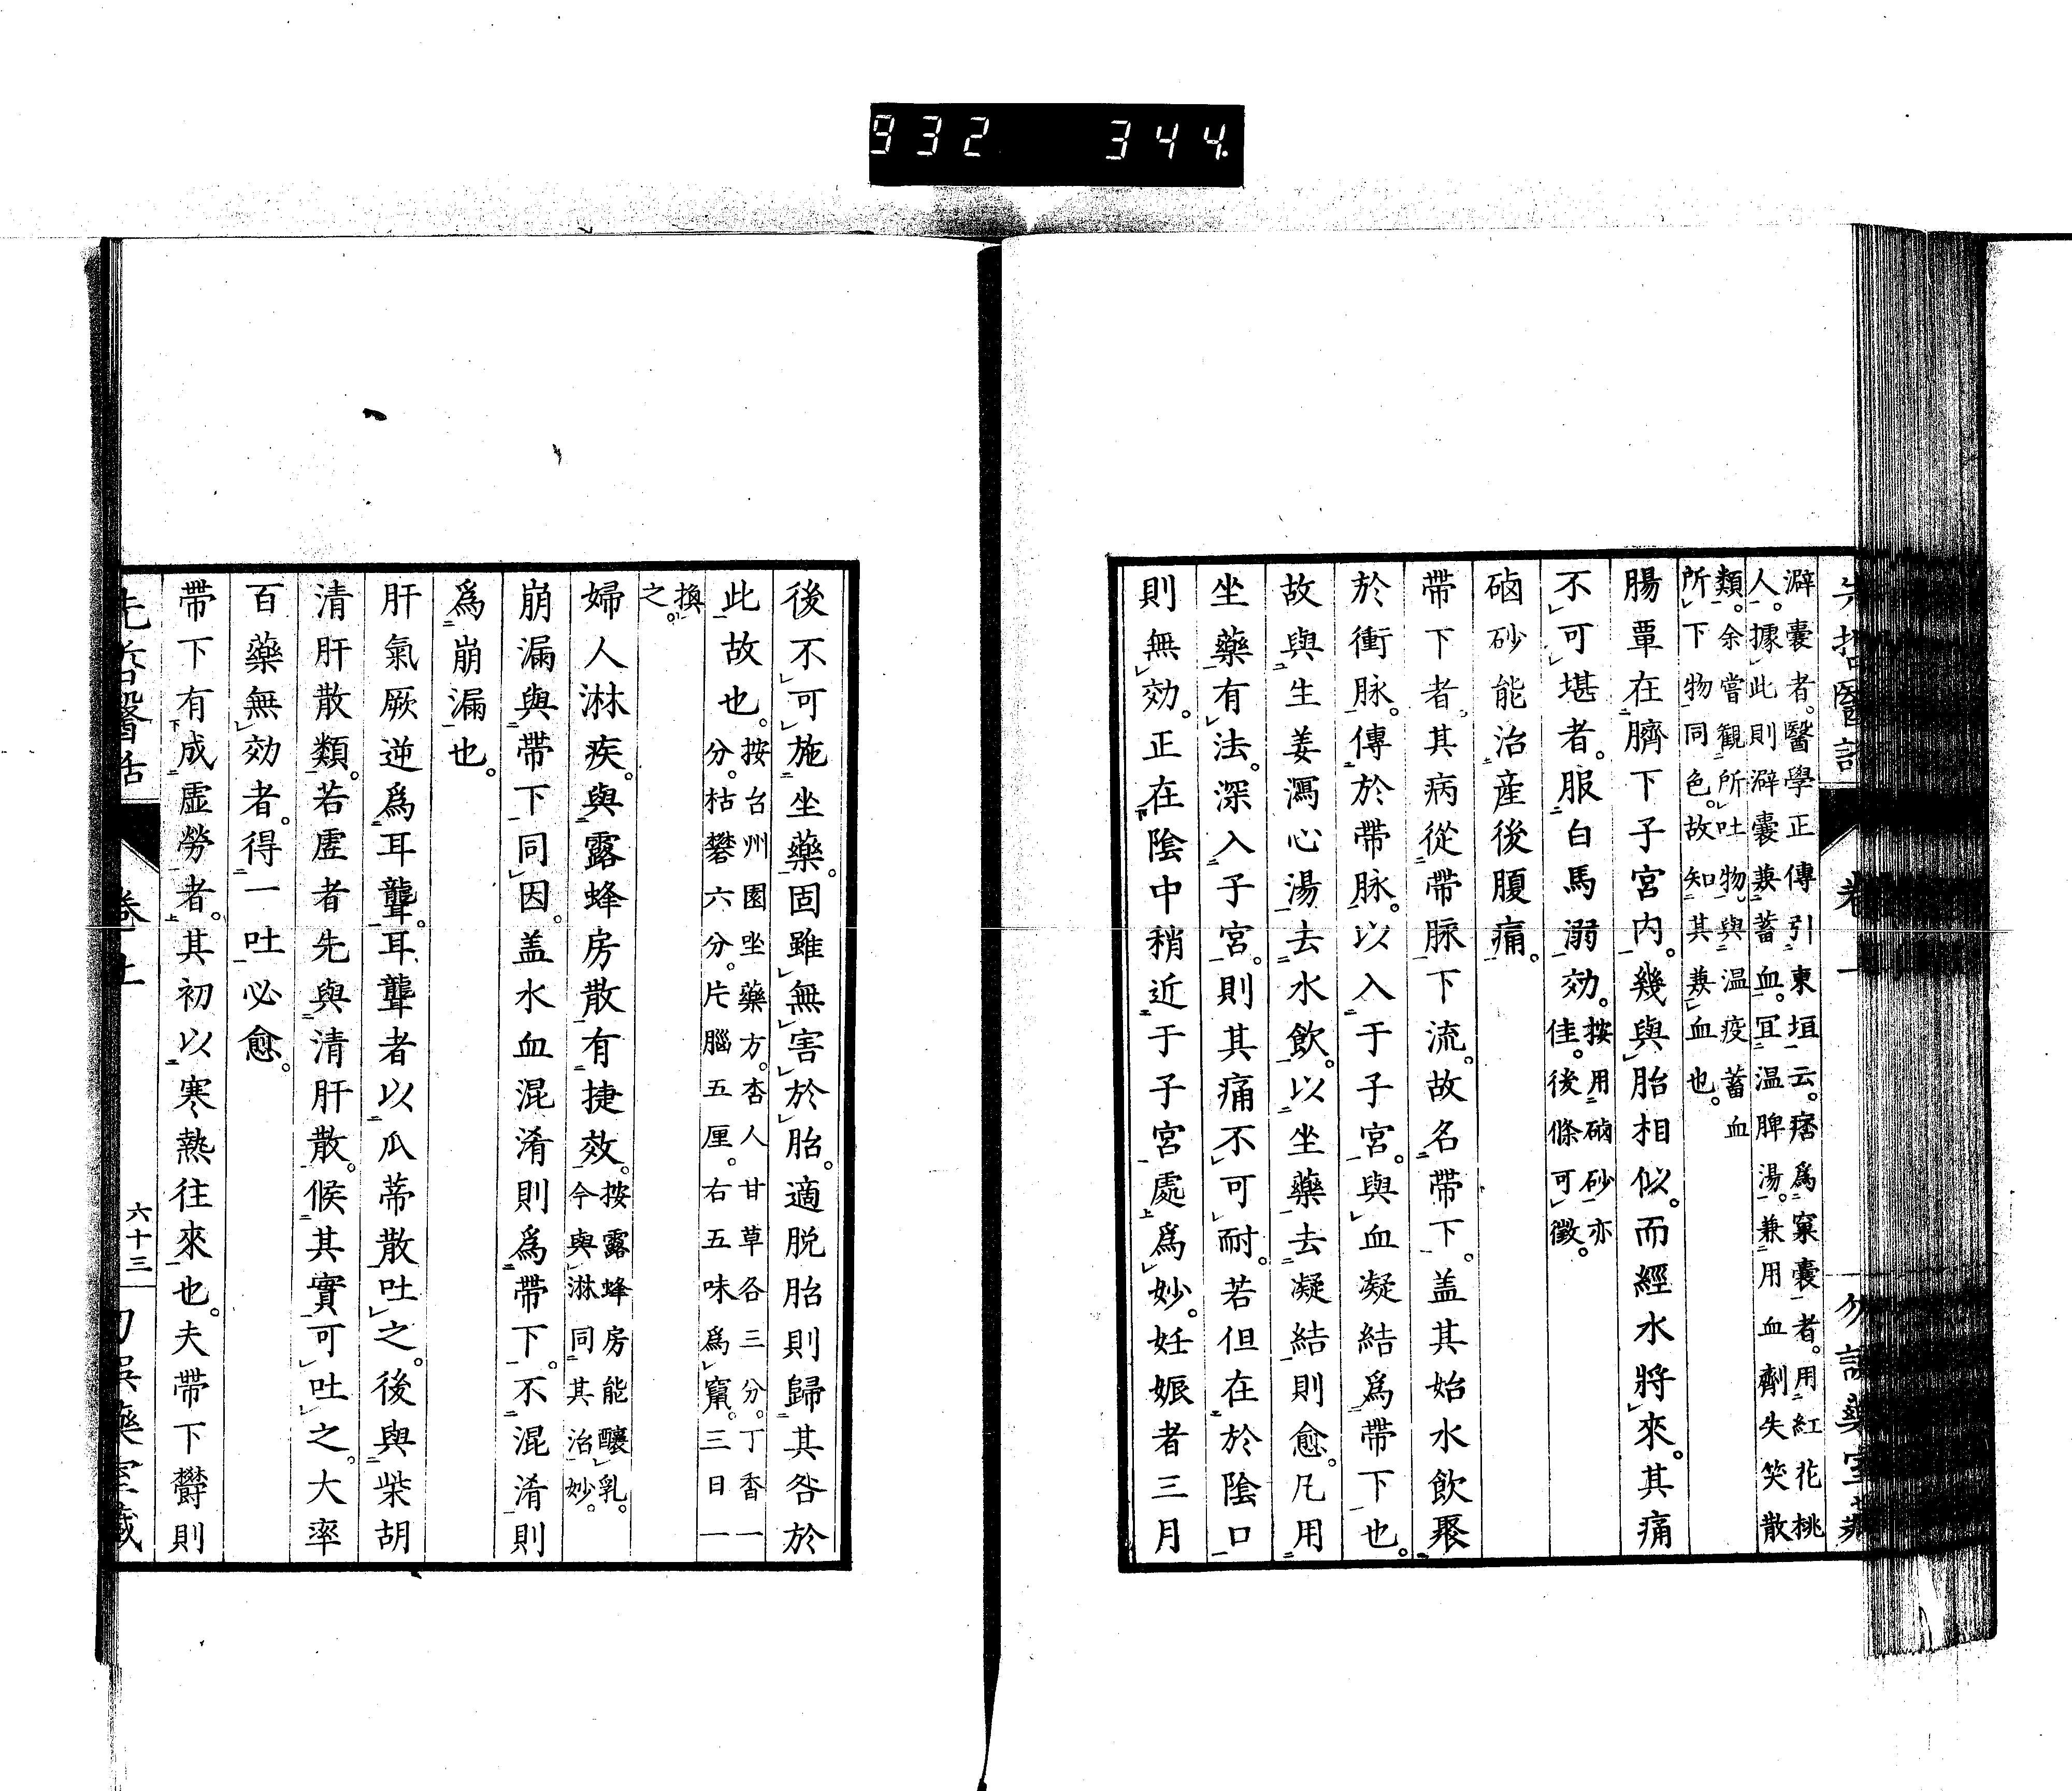 932 344.
澼囊者。醫學正傳引東垣云。痞爲窠囊者。用紅花桃
人。據此則澼囊兼蓄血。宜温脾湯。兼用血劑失笑散
類。余嘗觀所吐物。與温疫蓄血
所下物同色。故知其兼血也。
腸覃在臍下子宮内。幾與胎相似。而經水將來。其痛
不可堪者。服白馬溺効。按用硇砂亦
佳。後條可徵。
硇砂能治産後腹痛。
帶下者。其病從帶脉下流。故名帶下。盖其始水飲聚
於衝脉。傳於帶脉。以入于子宮。與血凝結爲帶下也。
故與生姜瀉心湯去水飲。以坐藥去凝結則愈。凡用
坐藥有法。深入子宮。則其痛不可耐。若但在於陰口
則無効。正在陰中稍近于子宮處爲妙。妊娠者三月
後不可施坐藥。固雖無害於胎。適脱胎則歸其咎於
此故也。按台州園坐藥方。杏人甘草各三分。丁香一
分。枯礬六分。片腦五厘。右五味爲竄。三日一
換
之。
婦人淋疾。與露蜂房散有捷效。按露蜂房能釀乳。
今與淋同其治妙。
崩漏與帶下同因。盖水血混淆則爲帶下。不混淆則
爲崩漏也。
肝氣厥逆爲耳聾。耳聾者以瓜蒂散吐之。後與柴胡
清肝散類。若虛者先與清肝散。候其實可吐之。大率
百藥無効者。得一吐必愈。
帶下有成虚勞者。其初以寒熱往來也。夫帶下欝則
卷上
六十三